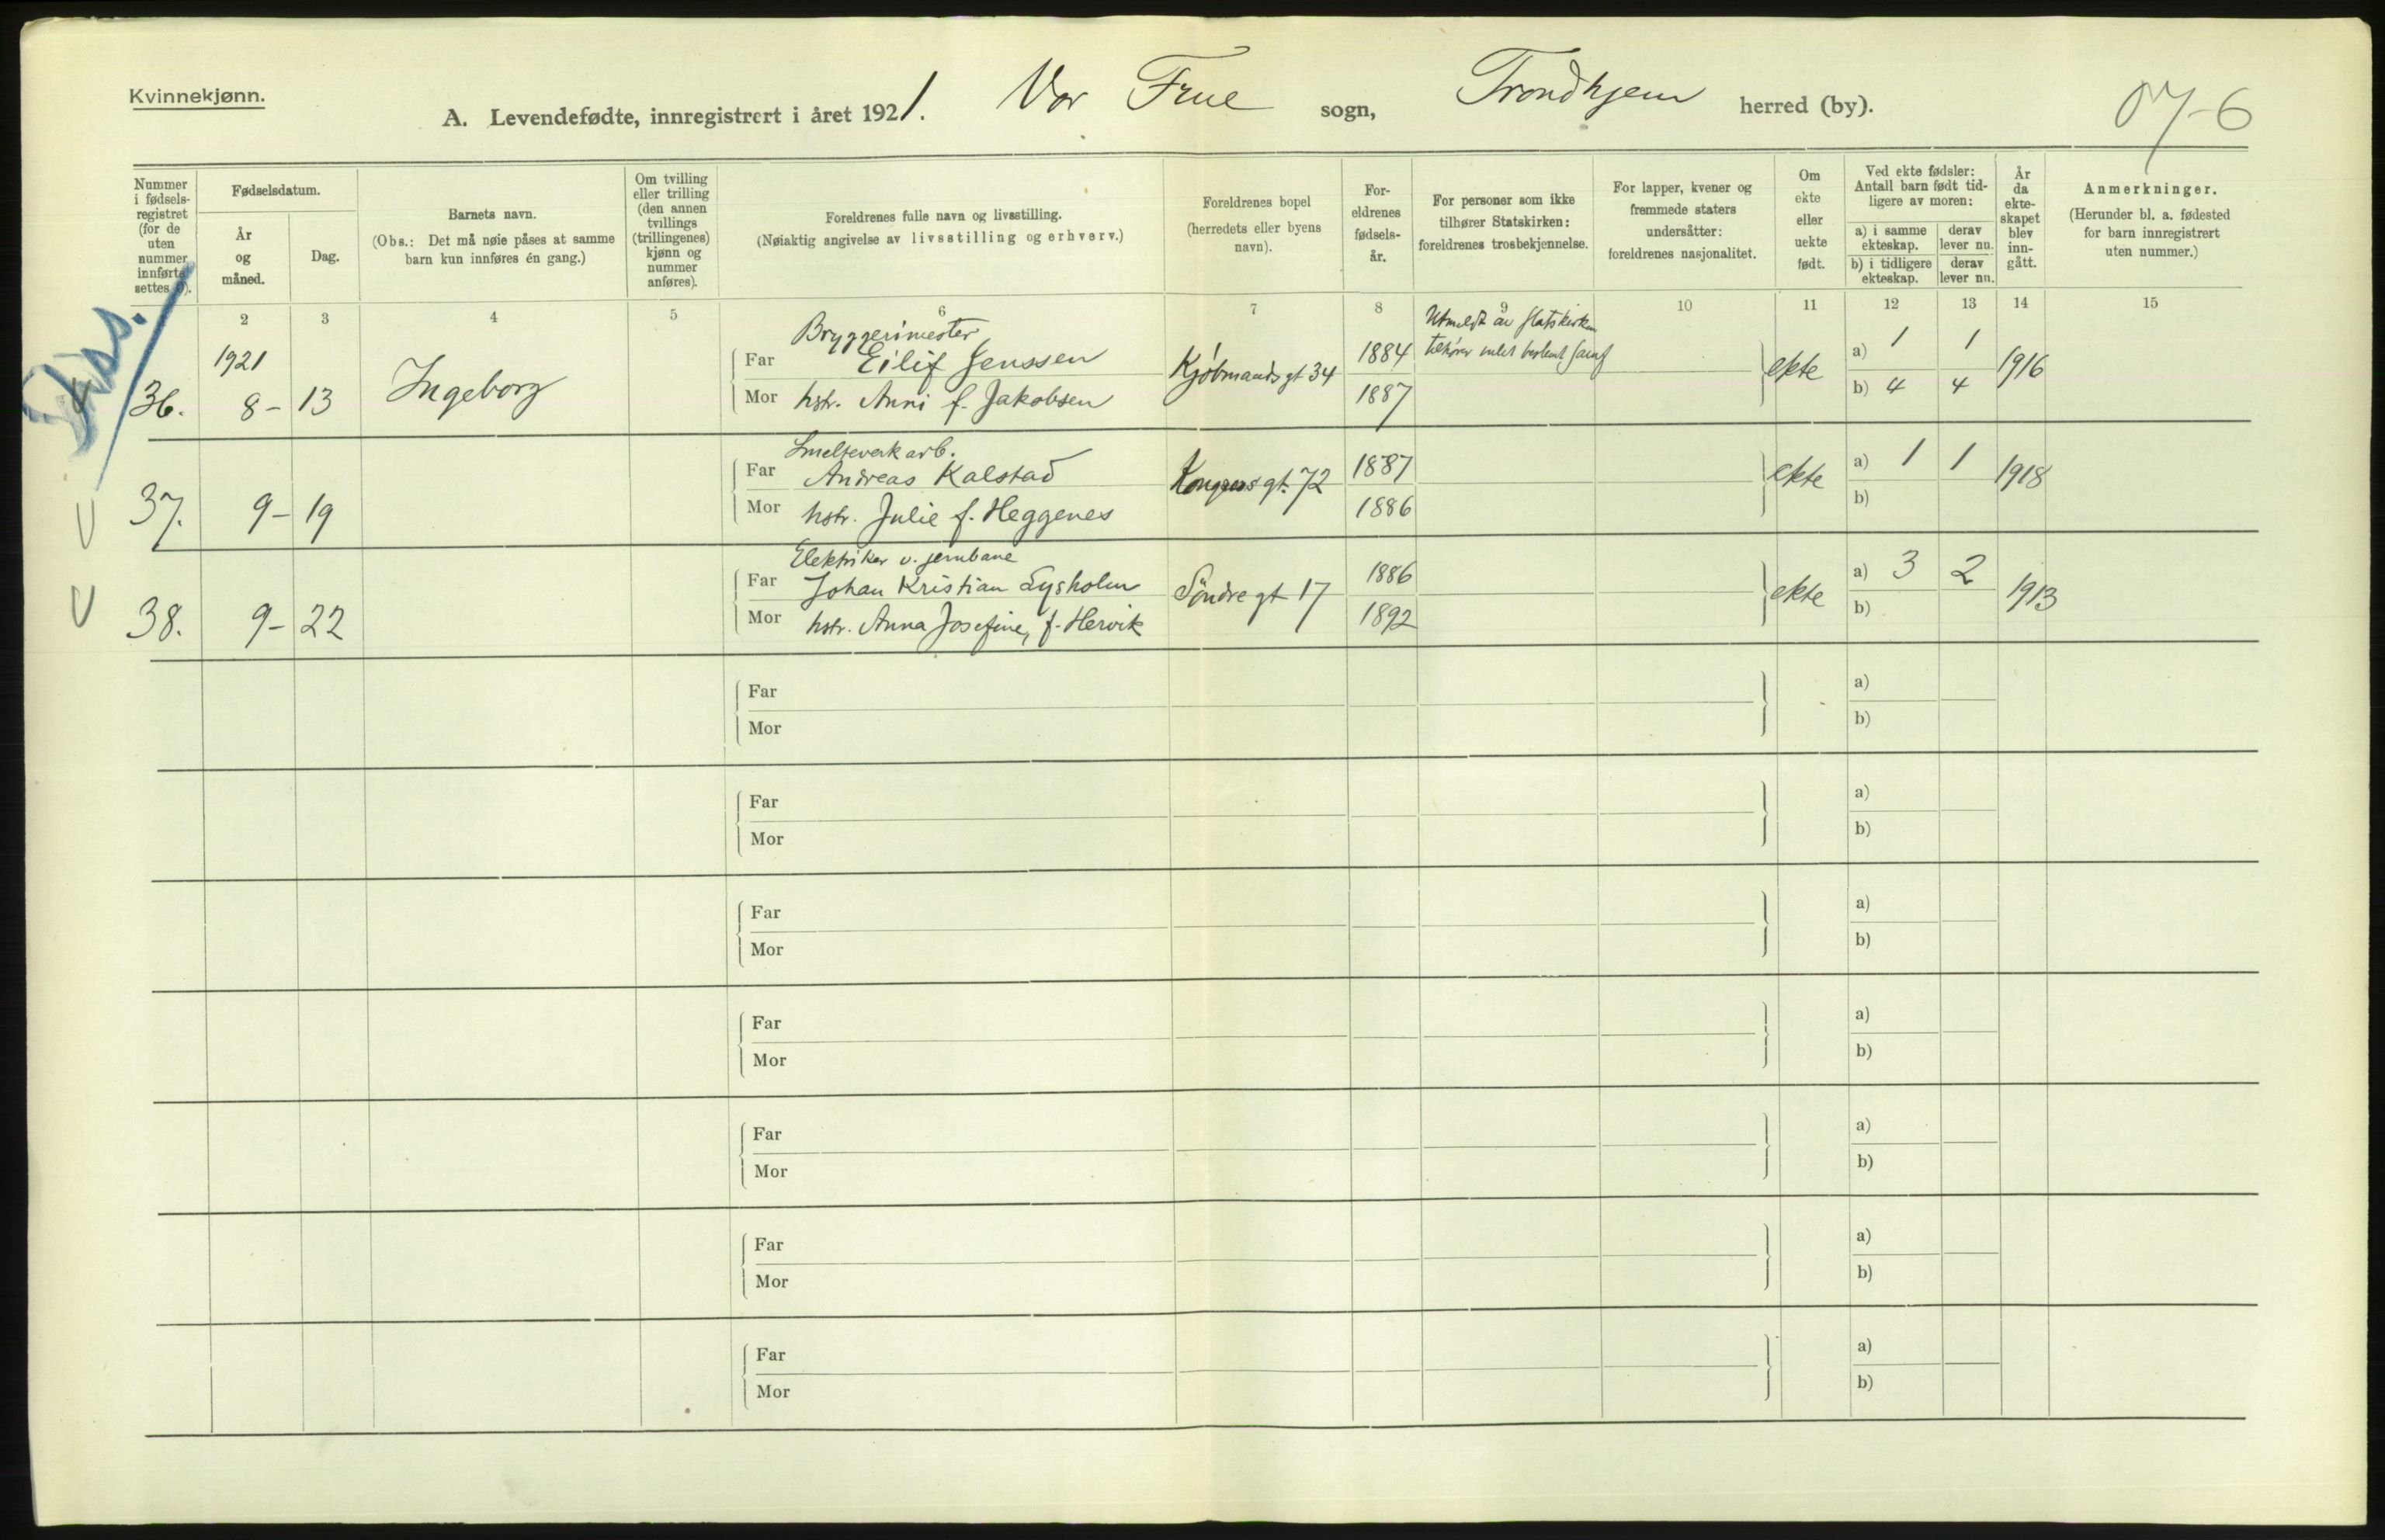 Kvinnekjønn.
A. Levendefødte, innregistrert i året 1921. Vor Frue sogn, Trondhjem herred (by).
07-6
Nummer i fødselsregistret (for de uten nummer innførte settes 0).
Fødselsdatum.
År og måned.
Dag.
Barnets navn.
(Obs.: Det må nøie påses at samme barn kun innføres én gang.)
Om tvilling eller trilling (den annen tvillings (trillingenes) kjønn og nummer anføres).
Foreldrenes fulle navn og livsstilling.
(Nøiaktig angivelse av livsstilling og erhverv.)
Foreldrenes bopel (herredets eller byens navn).
Foreldrenes fødselsår.
For personer som ikke tilhører Statskirken: foreldrenes trosbekjennelse.
For lapper, kvener og fremmede staters undersåtter: foreldrenes nasjonalitet.
Om ekte eller uekte født.
Ved ekte fødsler: Antall barn født tidligere av moren:
a) i samme ekteskap. derav lever nu.
b) i tidligere ekteskap. derav lever nu.
År da ekteskapet blev inngått.
Anmerkninger.
(Herunder bl. a. fødested for barn innregistrert uten nummer.)
2 3 4 5 6 7 8 9 10 11 12 13 14 15
Diss.
V 36. 1921 8- 13 Ingeborg
Bryggerimester
Far Eilif Jenssen
Mor hstr. Anni f. Jakobsen
Kjöbmandsgt 34
1884
1887
Utmeldt av statskirken
tilhører intet bestemt samf
ekte
a) 1 1
b) 4 4
1916
V 37. 9- 19
Smelteverkarb.
Far Andreas Kalstad
Mor hstr. Julie f. Heggenes
Kongensgt. 72
1887
1886
ekte
a) 1 1
b)
1918
V 38. 9- 22
Elektriker v. jernbane
Far Johan Kristian Lysholm
Mor hstr. Anna Josefine, f. Hervik
Söndregt 17
1886
1892
ekte
a) 3 2
b)
1913
Far a)
Mor b)
Far a)
Mor b)
Far a)
Mor b)
Far a)
Mor b)
Far a)
Mor b)
Far a)
Mor b)
Far a)
Mor b)